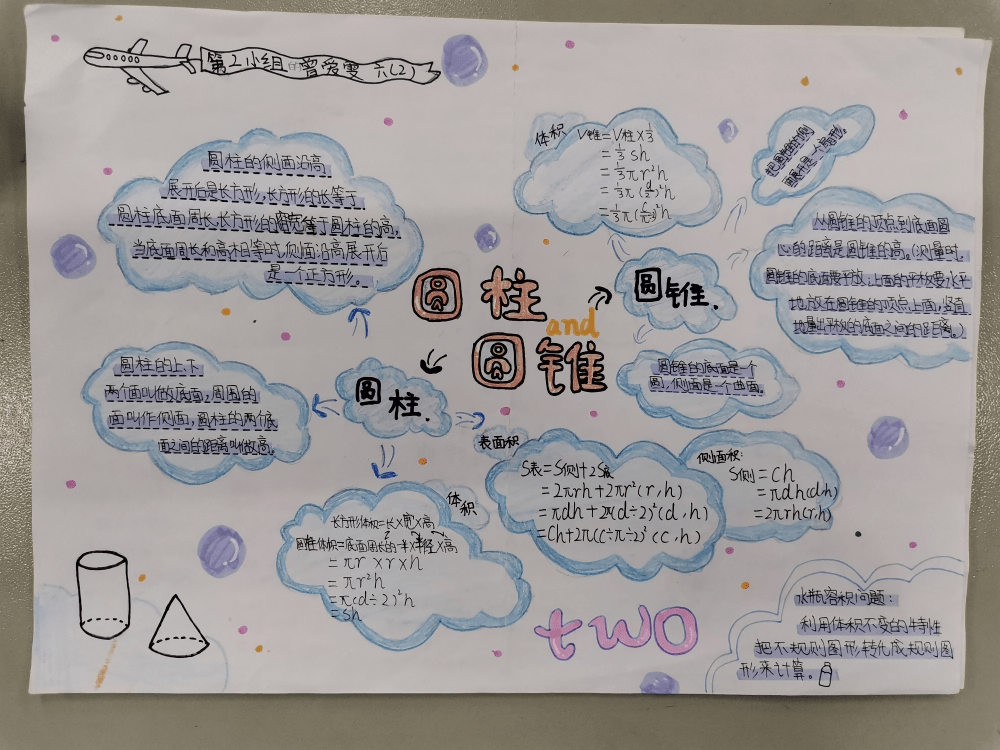 第2小组的曾爱雯 六(2)
圆柱
and
圆锥
圆柱的侧面沿高
展开后是长方形,长方形的长等于
圆柱底面周长,长方形的宽等于圆柱的高,
当底面周长和高相等时,侧面沿高展开后
是一个正方形。
圆柱.
圆柱的上下
两个面叫做底面,周围的
面叫作侧面,圆柱的两个底
面之间的距离叫做高。
体积
长方形体积=长×宽×高
圆柱体积=底面周长的一半×半径×高
=πr×r×h
=πr²h
=π(d÷2)²h
=sh
表面积
S表=S侧+2S底
=2πrh+2πr²(r,h)
=πdh+2π(d÷2)²(d,h)
=Ch+2π(C÷π÷2)²(C,h)
侧面积:
S侧=Ch
=πdh(d,h)
=2πrh(r,h)
圆锥.
体积
V锥=V柱×1/3
=1/3sh
=1/3πr²h
=1/3π(d/2)²h
把圆锥的侧
面展开是一个扇形。
从圆锥的顶点到底面圆
心的距离是圆锥的高。(测量时,
圆锥的底面要平放,上面的平板要水平
地放在圆锥的顶点上面,竖直
地量出平板的底面之间的距离。)
圆锥的底面是一个
圆,侧面是一个曲面。
two
水瓶容积问题:
利用体积不变的特性
把不规则图形转化成规则图
形来计算。